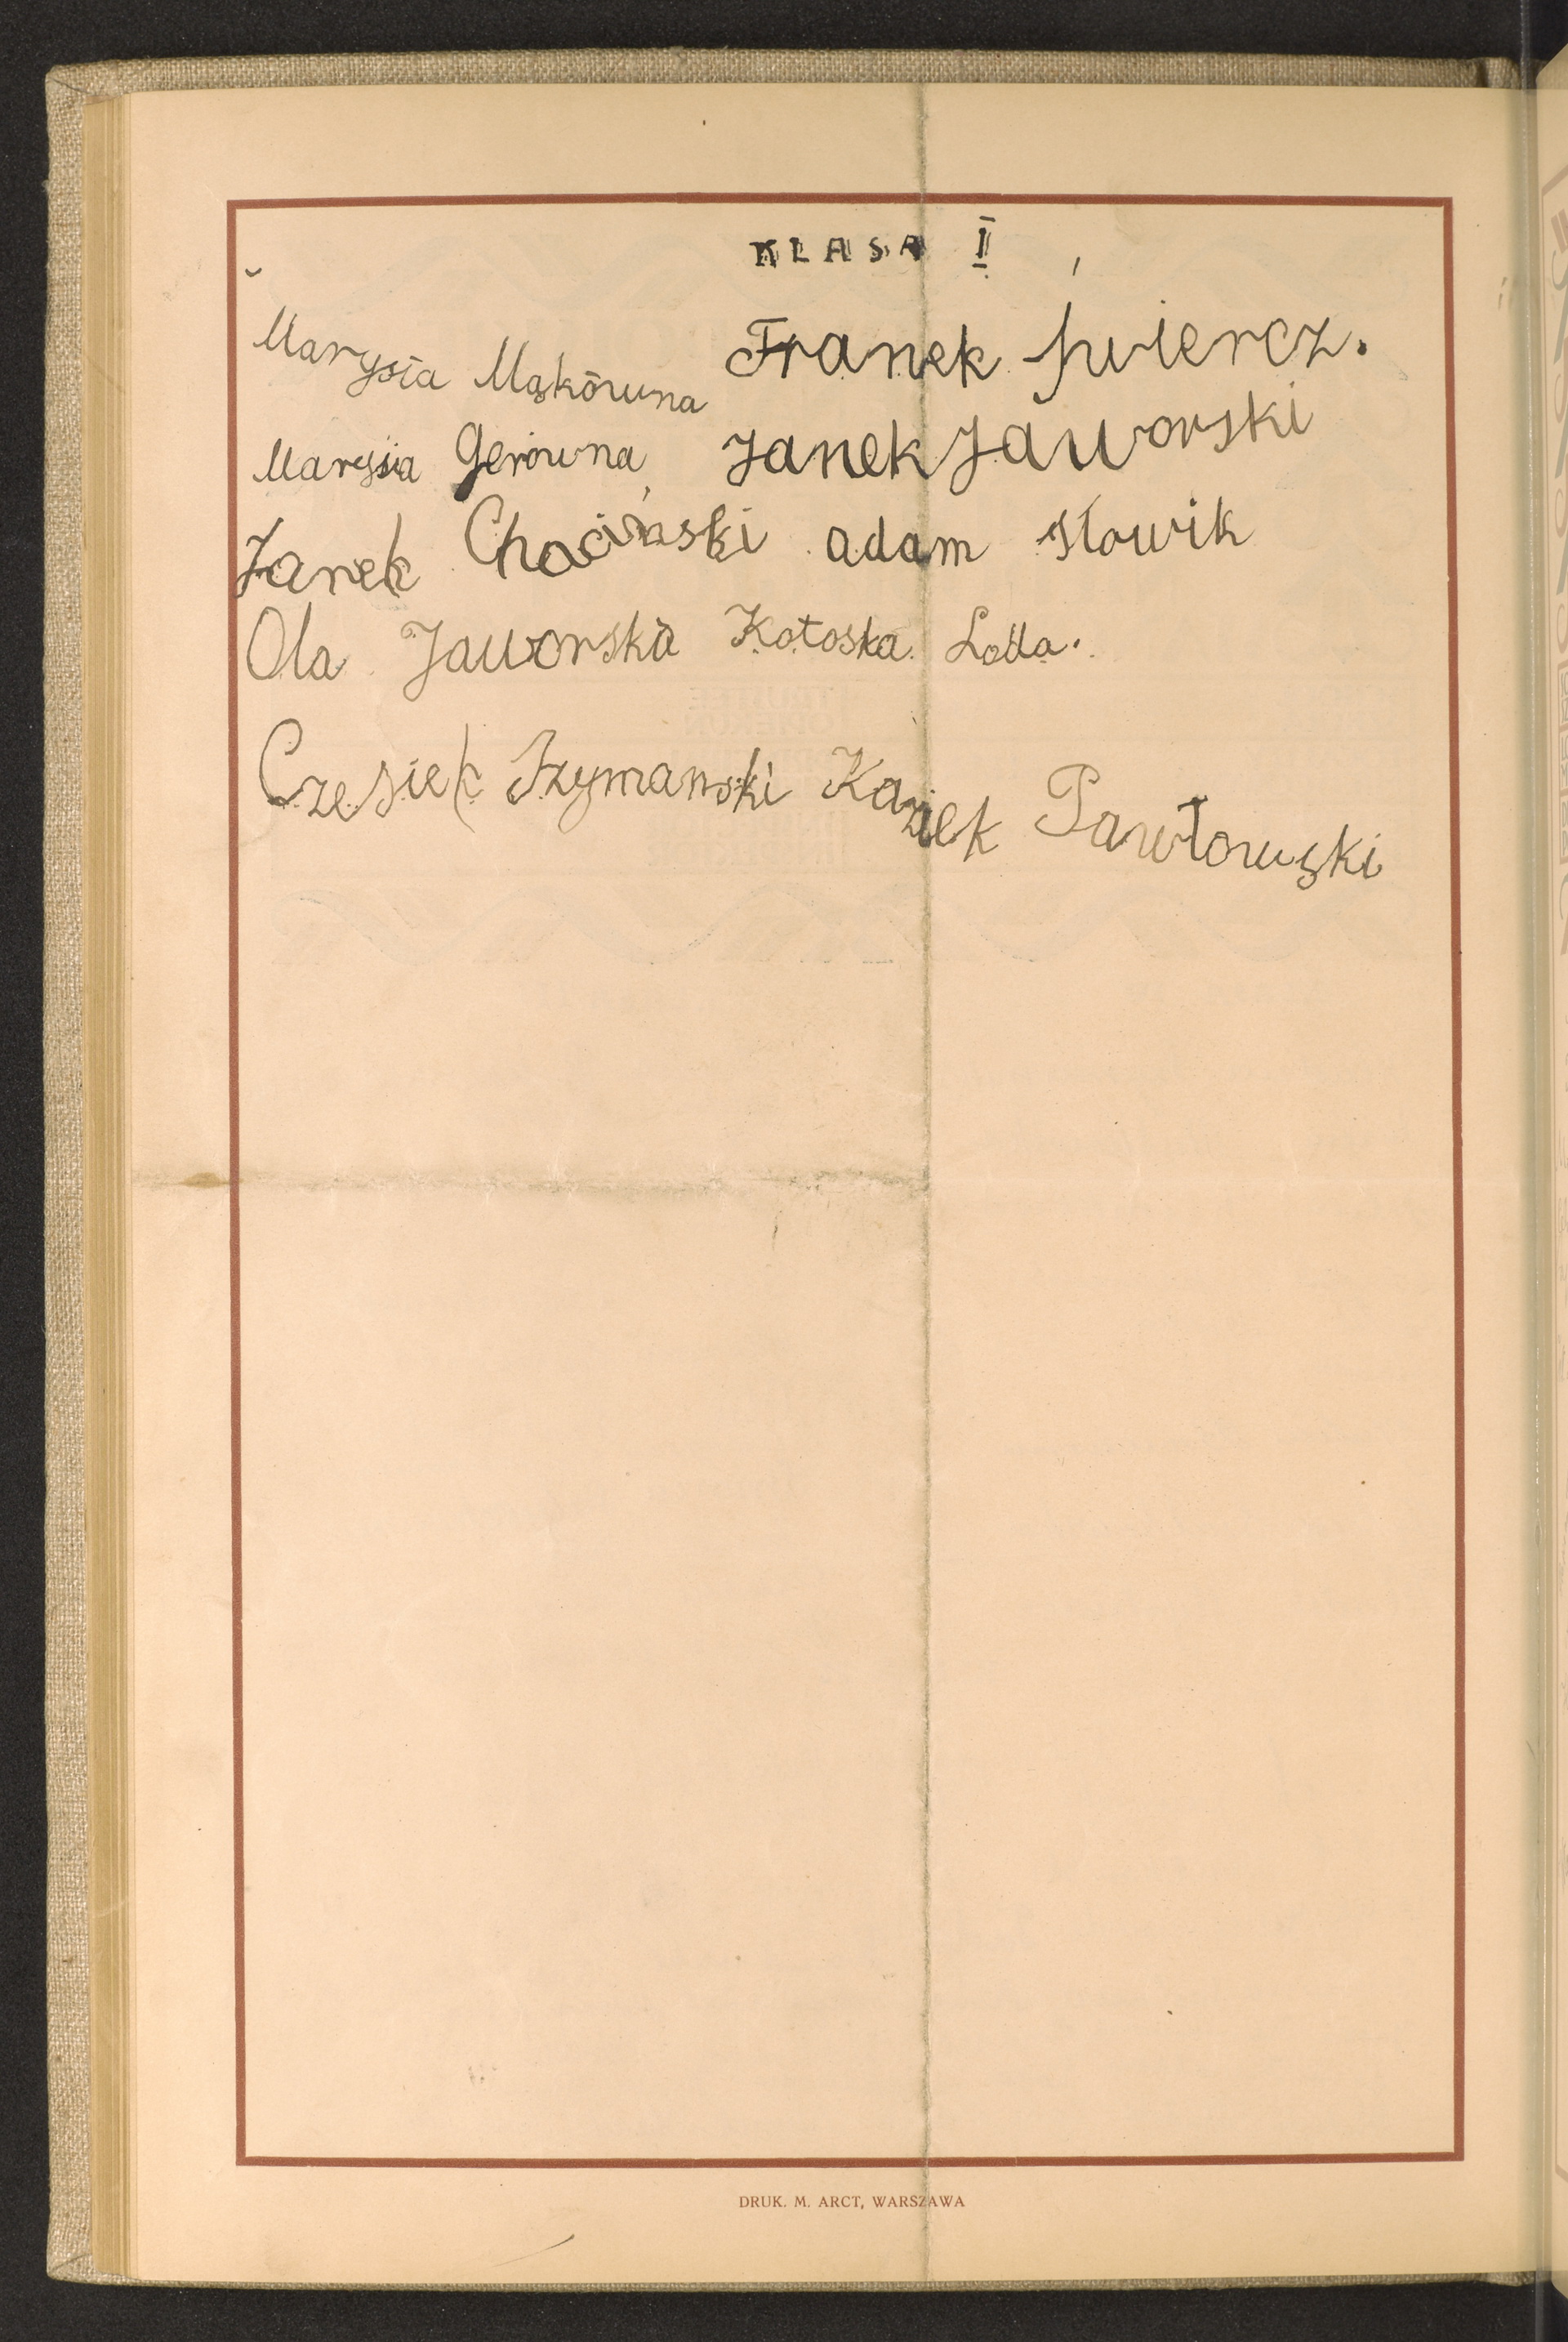 KLASA II
Marysia Mąkówna Franek Świercz.
Marysia Gerówna Janek Jaworski
Janek Chociński adam słowik
Ola Jaworska Kotoska Lodla.
Czesiek Szymanski Kaziek Pawłowski
DRUK. M. ARCT, WARSZAWA